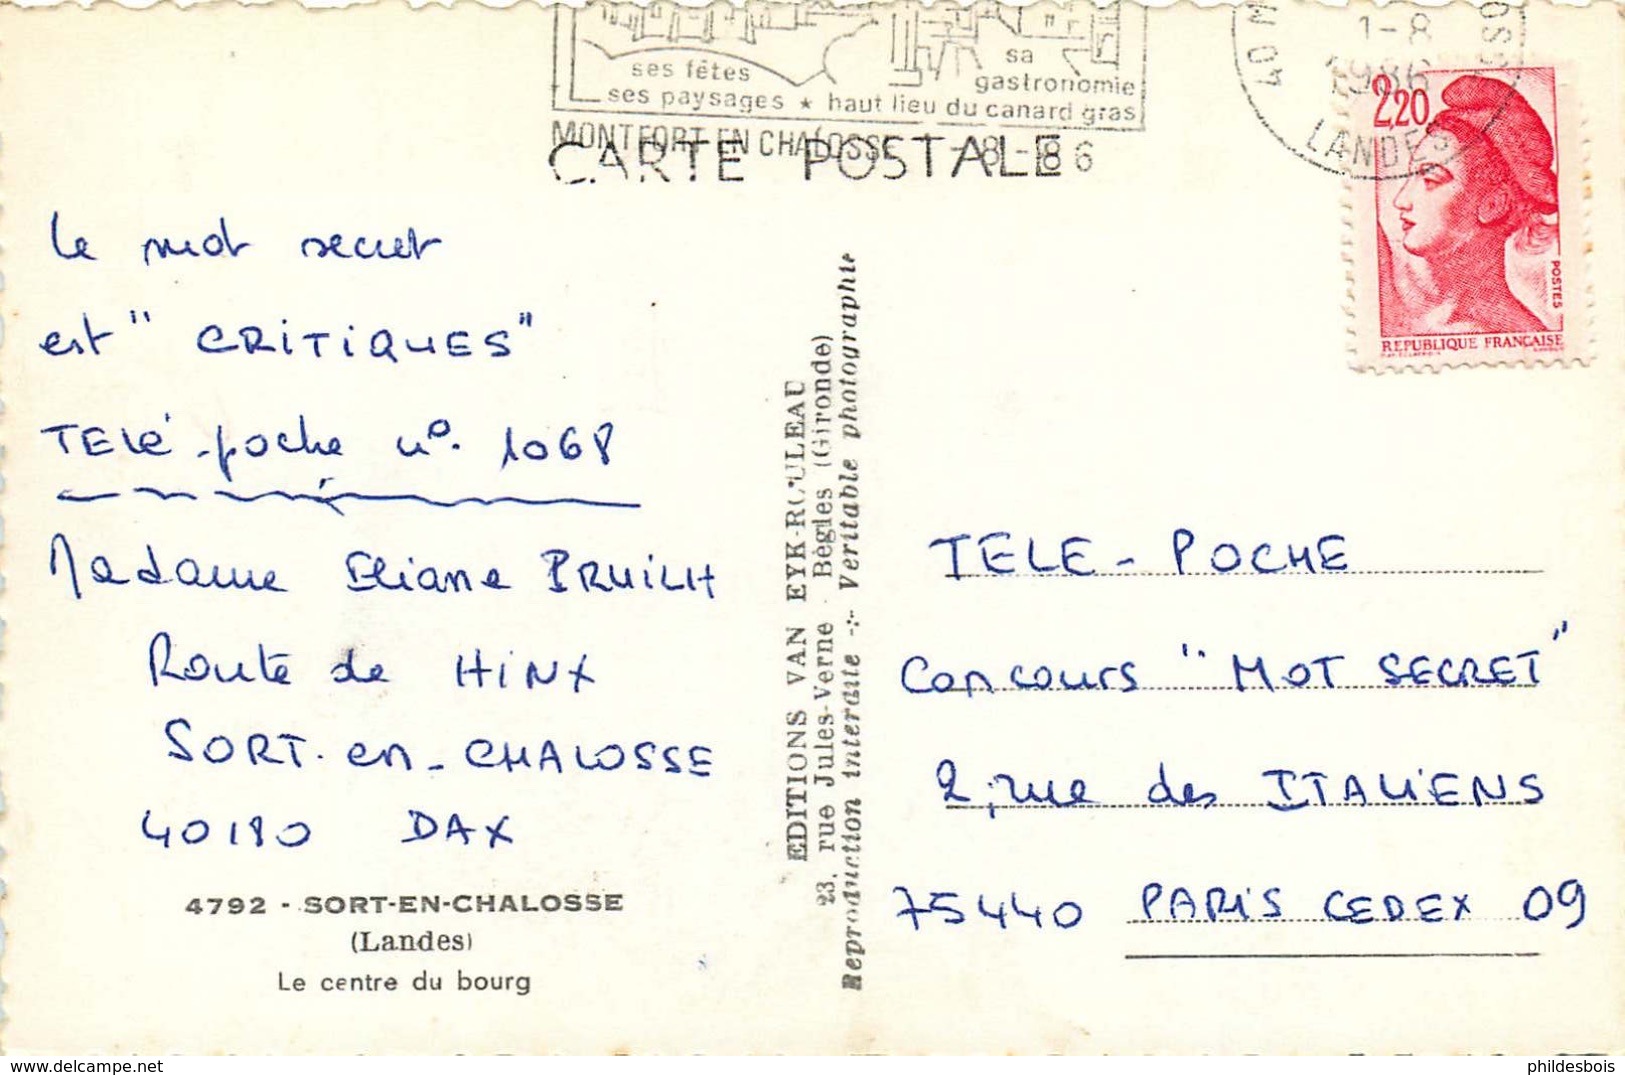 ses fêtes
ses paysages ★ haut lieu du canard gras
sa
gastronomie
MONTFORT EN CHALOSSE 1-8-86
CARTE POSTALE
40 M
1-8
1986
LANDES
2,20
POSTES
REPUBLIQUE FRANÇAISE
Le mot secret
est " CRITIQUES "
TELÉ-poche n°. 1068
Madame Eliane PRUILH
Route de HINX
SORT-en-CHALOSSE
40180 DAX
4792 - SORT-EN-CHALOSSE
(Landes)
Le centre du bourg
EDITIONS VAN EYK-ROULEAU
23, rue Jules-Verne - Bègles (Gironde)
Reproduction interdite -:- Veritable photographie
TELE-POCHE
Concours " MOT SECRET "
2, rue des ITALIENS
75440 PARIS CEDEX 09
www.delcampe.net
phildesbois